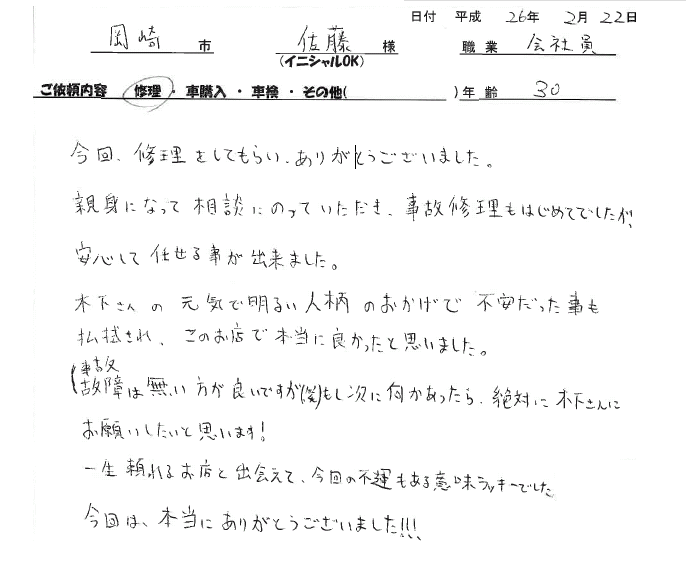 日付 平成 26年 2月 22日
岡崎 市 佐藤 様 職業 会社員
(イニシャルOK)
ご依頼内容 修理・車購入・車検・その他( )年齢 30
今回、修理をしてもらい、ありがとうございました。
親身になって相談にのっていただき、事故修理もはじめてでしたが、
安心して任せる事が出来ました。
木下さんの元気で明るい人柄のおかげで不安だった事も
払拭され、このお店で本当に良かったと思いました。
事故
(故障は無い方が良いですが(笑)もし次に何かあったら、絶対に木下さんに
お願いしたいと思います!
一生頼れるお店と出会えて、今回の不運もある意味ラッキーでした
今回は、本当にありがとうございました!!!